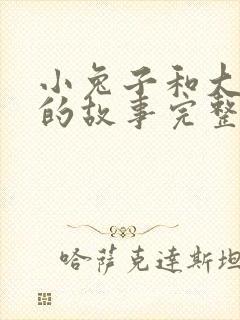 小兔子和大
的故事完整
哈萨克达斯坦